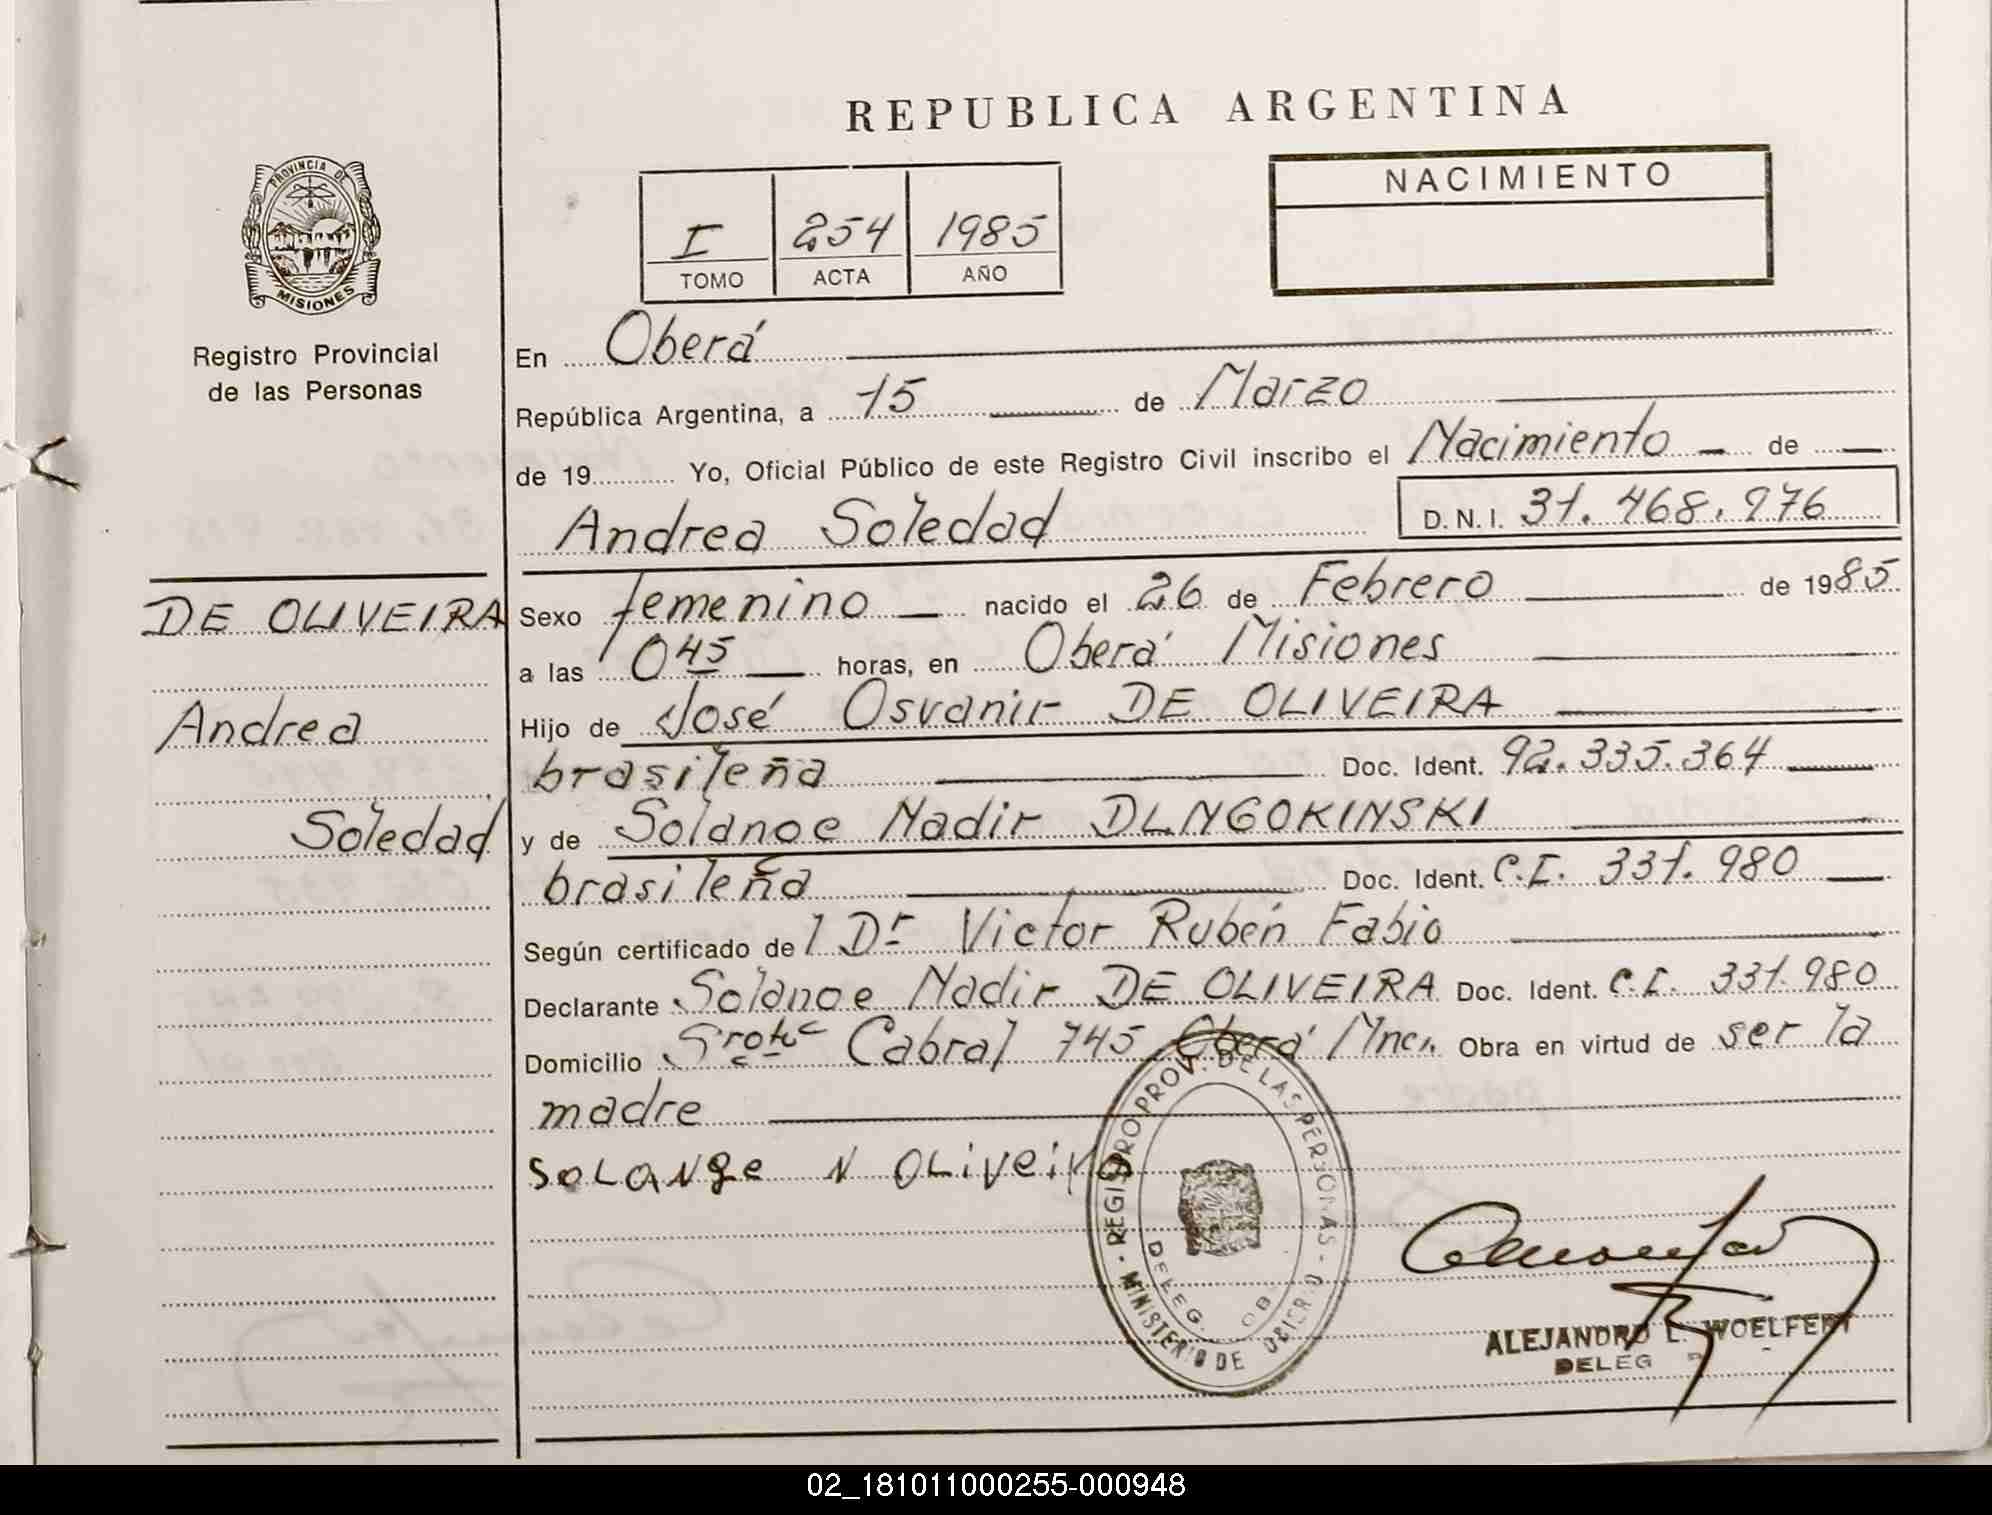 REPUBLICA ARGENTINA
PROVINCIA DE
MISIONES
Registro Provincial
de las Personas
I 254 1985
TOMO ACTA AÑO
NACIMIENTO
En Oberá
República Argentina, a 15 de Marzo
de 19 Yo, Oficial Público de este Registro Civil inscribo el Nacimiento de
Andrea Soledad D.N.I. 31.468.976
DE OLIVEIRA
Andrea
Soledad
Sexo femenino nacido el 26 de Febrero de 1985
a las 0 45 horas, en Oberá Misiones
Hijo de José Osvanir DE OLIVEIRA
brasileña Doc. Ident. 92.335.364
y de Solange Nadir DLNGOKINSKI
brasileña Doc. Ident. C.I. 331.980
Según certificado de l Dr Victor Rubén Fabio
Declarante Solange Nadir DE OLIVEIRA Doc. Ident. C.I. 331.980
Domicilio Cabral 745 Oberá Mnes. Obra en virtud de ser la
madre
SOLANge N OLiveira
REGISTRO PROV. DE LAS PERSONAS
MINISTERIO DE GOBIERNO
DELEG. OB
ALEJANDRO L. WOELFERT
DELEG
02_181011000255-000948